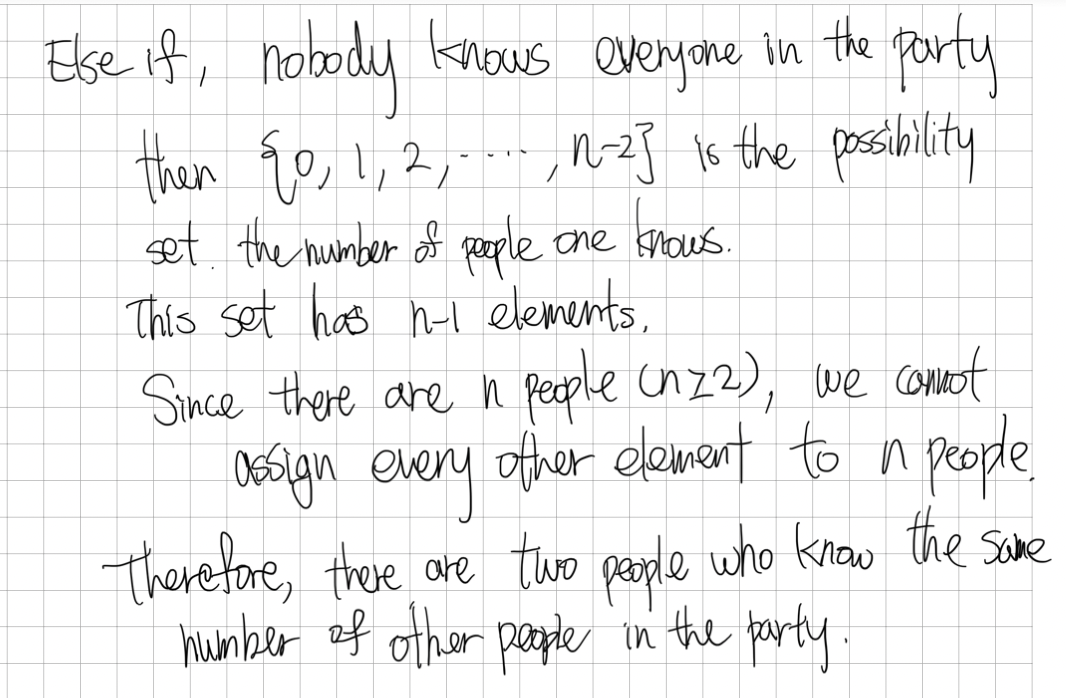 Else if, nobody knows everyone in the party
then {0, 1, 2, ....., n-2} is the possibility
set. the number of people one knows.
This set has n-1 elements.
Since there are n people (n≥2), we cannot
assign every other element to n people.
therefore, there are two people who know the same
number of other people in the party.